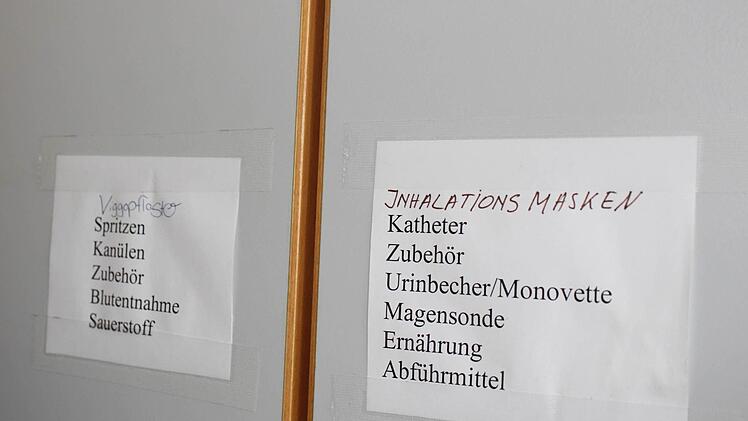 Viggopflaster
Spritzen
Kanülen
Zubehör
Blutentnahme
Sauerstoff
INHALATIONS MASKEN
Katheter
Zubehör
Urinbecher/Monovette
Magensonde
Ernährung
Abführmittel